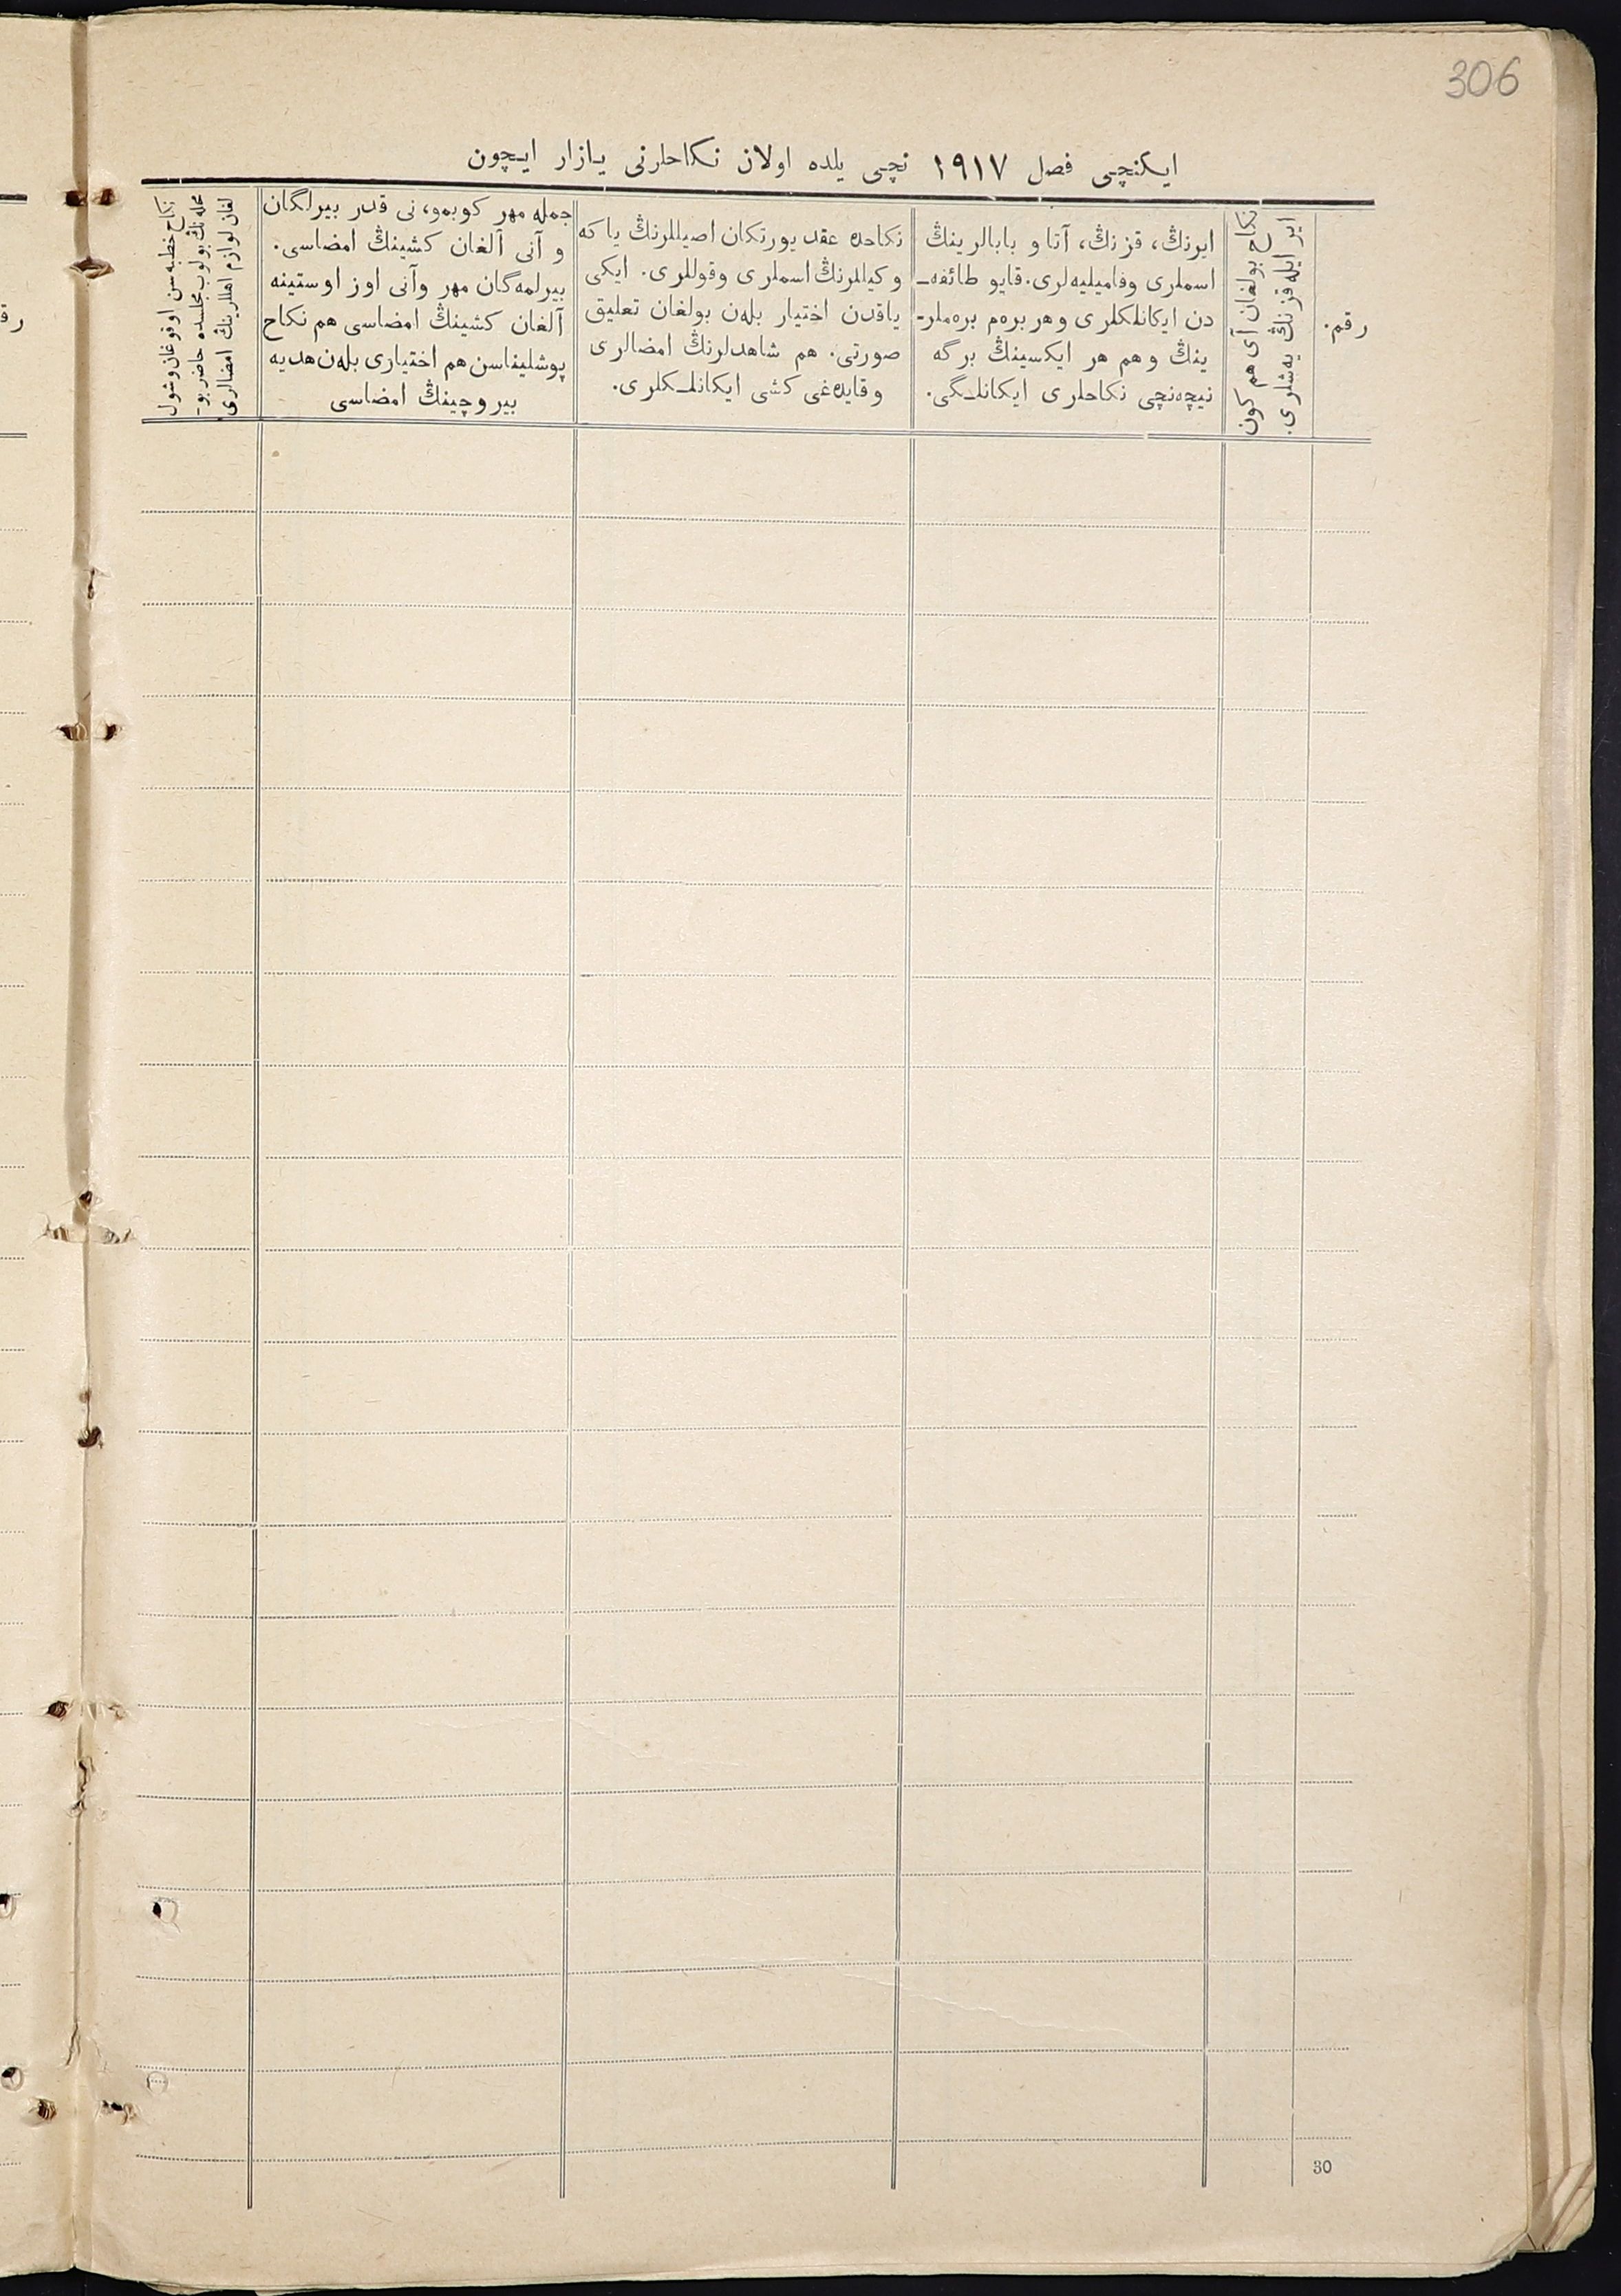 306
ایکنچی فصل ١٩١٧ نچی یلده اولان نکاحلرنی یازار ایچون
رقم.
نکاح بولغان آی هم کون
ایر ایله قزنڭ یەشلری.
ایرنڭ، قزنڭ، آتا و بابالرینڭ
اسملری وفامیلیەلری. قایو طائفه‌ـ
دن ایکانلکلری وهر برەم برەملر-
ینڭ وهم هر ایکسینڭ برگه
نیچەنچی نکاحلری ایکانلـگی.
نکاحده عقد یورتکان اصیللرنڭ یا که
وکیللرنڭ اسملری وقوللری. ایکی
یاقدن اختیار بلەن بولغان تعلیق
صورتی. هم شاهدلرنڭ امضالری
وقایدەغی کشی ایکانلـکلری.
جمله مهر کوبمو، نی قدر بیرلگان
و آنی آلغان کشینڭ امضاسی.
بیرلمەگان مهر وآنی اوز اوستینه
آلغان کشینڭ امضاسی هم نکاح
پوشلیناسن هم اختیاری بلەن هدیه
بیروچینڭ امضاسی
نکاح خطبه سن اوقوغان وشول
محله نڭ بولوب مجلسده حاضر بو-
لغان لوازم اهللرینڭ امضالری
30